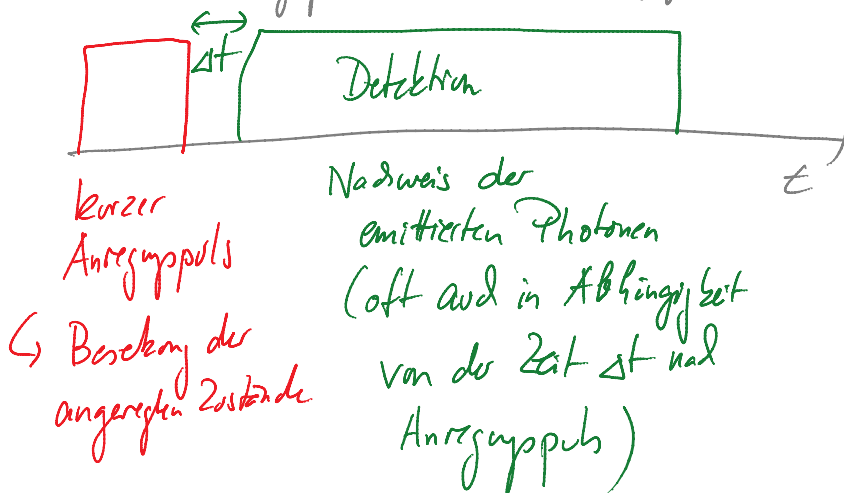 Δt
Detektion
t
kurzer
Anregungspuls
↳ Besetzung der
angeregten Zustände
Nachweis der
emittierten Photonen
(oft auch in Abhängigkeit
von der Zeit Δt nach
Anregungspuls)